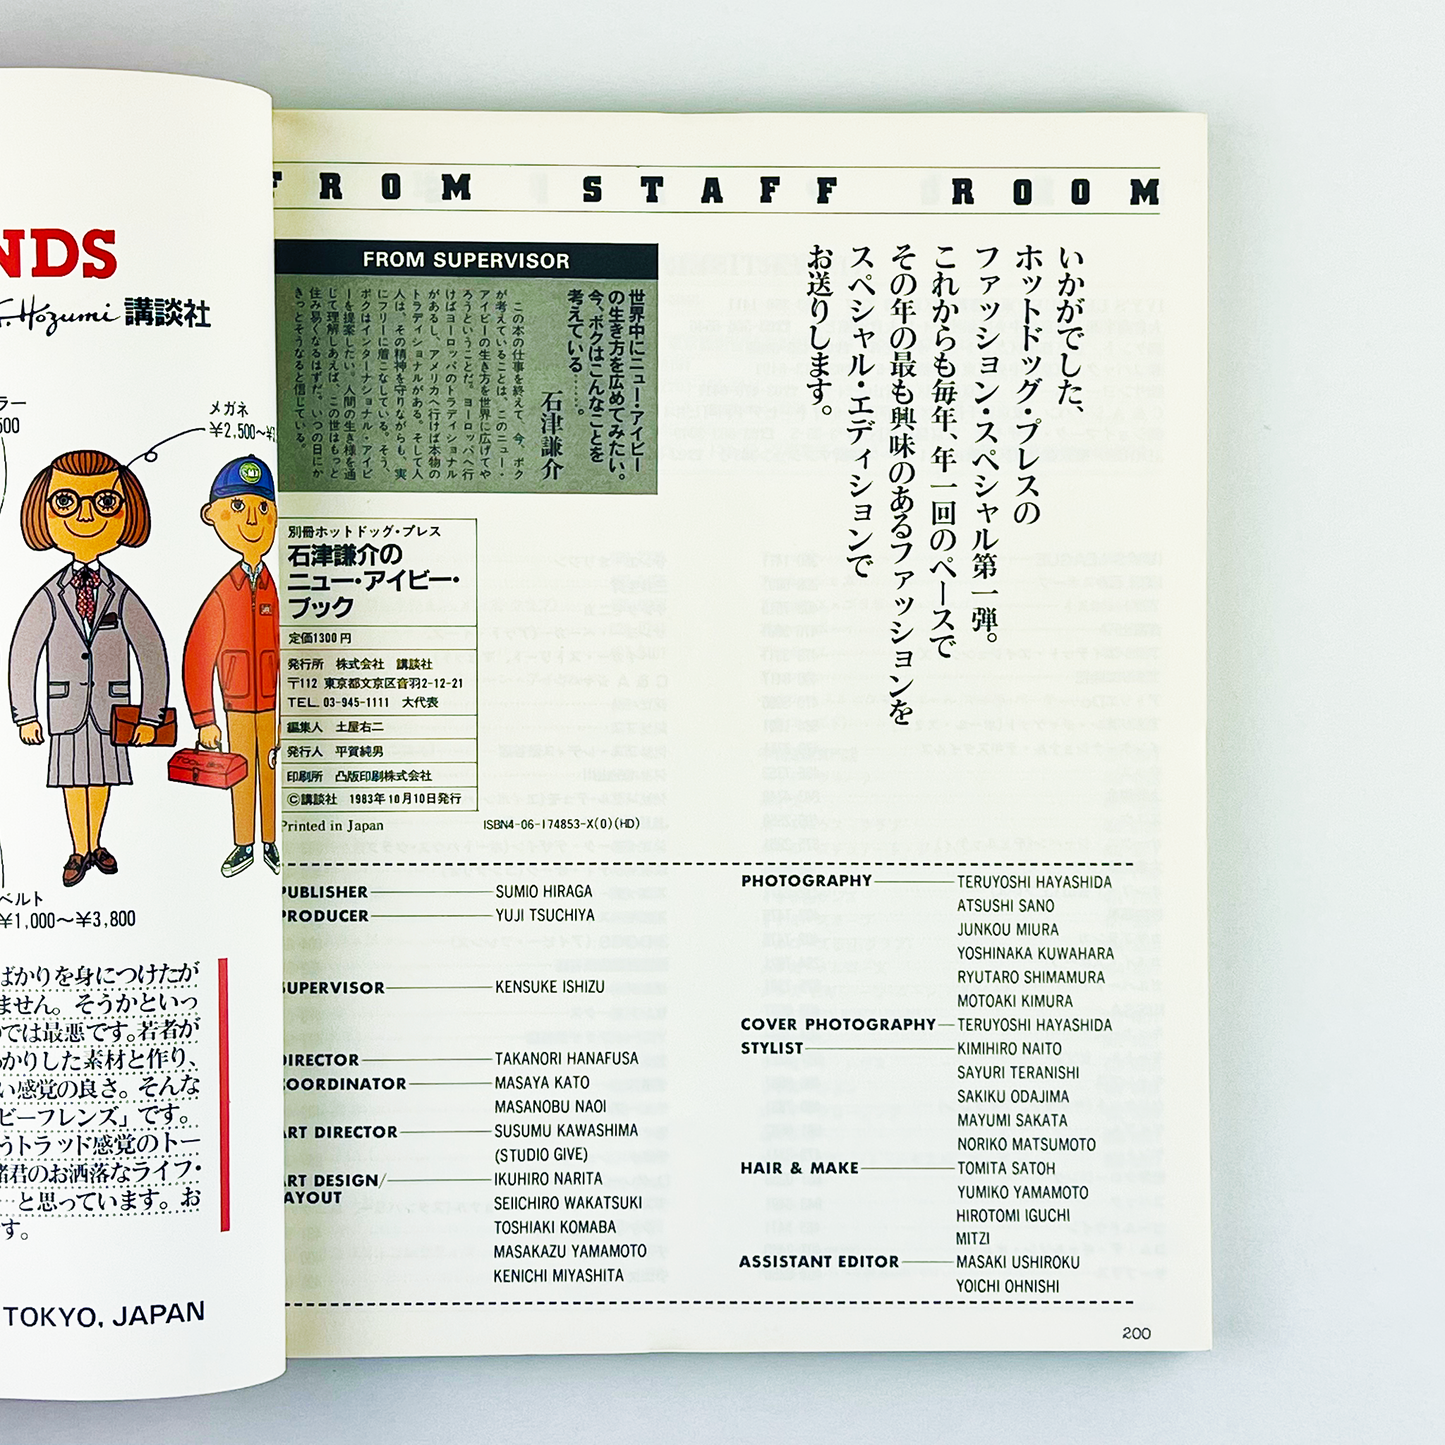 NDS
T. Hozumi 講談社
ラー
500
メガネ
¥2,500〜¥
TOOL BOX
ベルト
¥1,000〜¥3,800
ばかりを身につけたが
ません。そうかといっ
では最悪です。若者が
かりした素材と作り、
い感覚の良さ。そんな
ビーフレンズ」です。
うトラッド感覚のトー
諸君のお洒落なライフ・
…と思っています。お
す。
TOKYO, JAPAN
FROM STAFF ROOM
いかがでした、
ホットドッグ・プレスの
ファッション・スペシャル第一弾。
これからも毎年、年一回のペースで
その年の最も興味のあるファッションを
スペシャル・エディションで
お送りします。
FROM SUPERVISOR
世界中にニュー・アイビー
の生き方を広めてみたい。
今、ボクはこんなことを
考えている……。
石津謙介
この本の仕事を終えて、今、ボク
が考えていることは、このニュー・
アイビーの生き方を世界に広げてや
ろうということだ。ヨーロッパへ行
けばヨーロッパのトラディショナル
があるし、アメリカへ行けば本物の
トラディショナルがある。そして人
人は、その精神を守りながらも、実
にフリーに着こなしている。そう、
ボクはインターナショナル・アイビ
ーを提案したい。人間の生き様を通
じて理解しあえば、この世はもっと
住み易くなるはずだ。いつの日にか
きっとそうなると信じている。
別冊ホットドッグ・プレス
石津謙介の
ニュー・アイビー・
ブック
定価1300円
発行所 株式会社 講談社
〒112 東京都文京区音羽2-12-21
TEL. 03-945-1111 大代表
編集人 土屋右二
発行人 平賀純男
印刷所 凸版印刷株式会社
©講談社 1983年10月10日発行
Printed in Japan ISBN4-06-174853-X(0)(HD)
PUBLISHER SUMIO HIRAGA
PRODUCER YUJI TSUCHIYA
SUPERVISOR KENSUKE ISHIZU
DIRECTOR TAKANORI HANAFUSA
COORDINATOR MASAYA KATO
MASANOBU NAOI
ART DIRECTOR SUSUMU KAWASHIMA
(STUDIO GIVE)
ART DESIGN/ IKUHIRO NARITA
LAYOUT SEIICHIRO WAKATSUKI
TOSHIAKI KOMABA
MASAKAZU YAMAMOTO
KENICHI MIYASHITA
PHOTOGRAPHY TERUYOSHI HAYASHIDA
ATSUSHI SANO
JUNKOU MIURA
YOSHINAKA KUWAHARA
RYUTARO SHIMAMURA
MOTOAKI KIMURA
COVER PHOTOGRAPHY TERUYOSHI HAYASHIDA
STYLIST KIMIHIRO NAITO
SAYURI TERANISHI
SAKIKU ODAJIMA
MAYUMI SAKATA
NORIKO MATSUMOTO
HAIR & MAKE TOMITA SATOH
YUMIKO YAMAMOTO
HIROTOMI IGUCHI
MITZI
ASSISTANT EDITOR MASAKI USHIROKU
YOICHI OHNISHI
200